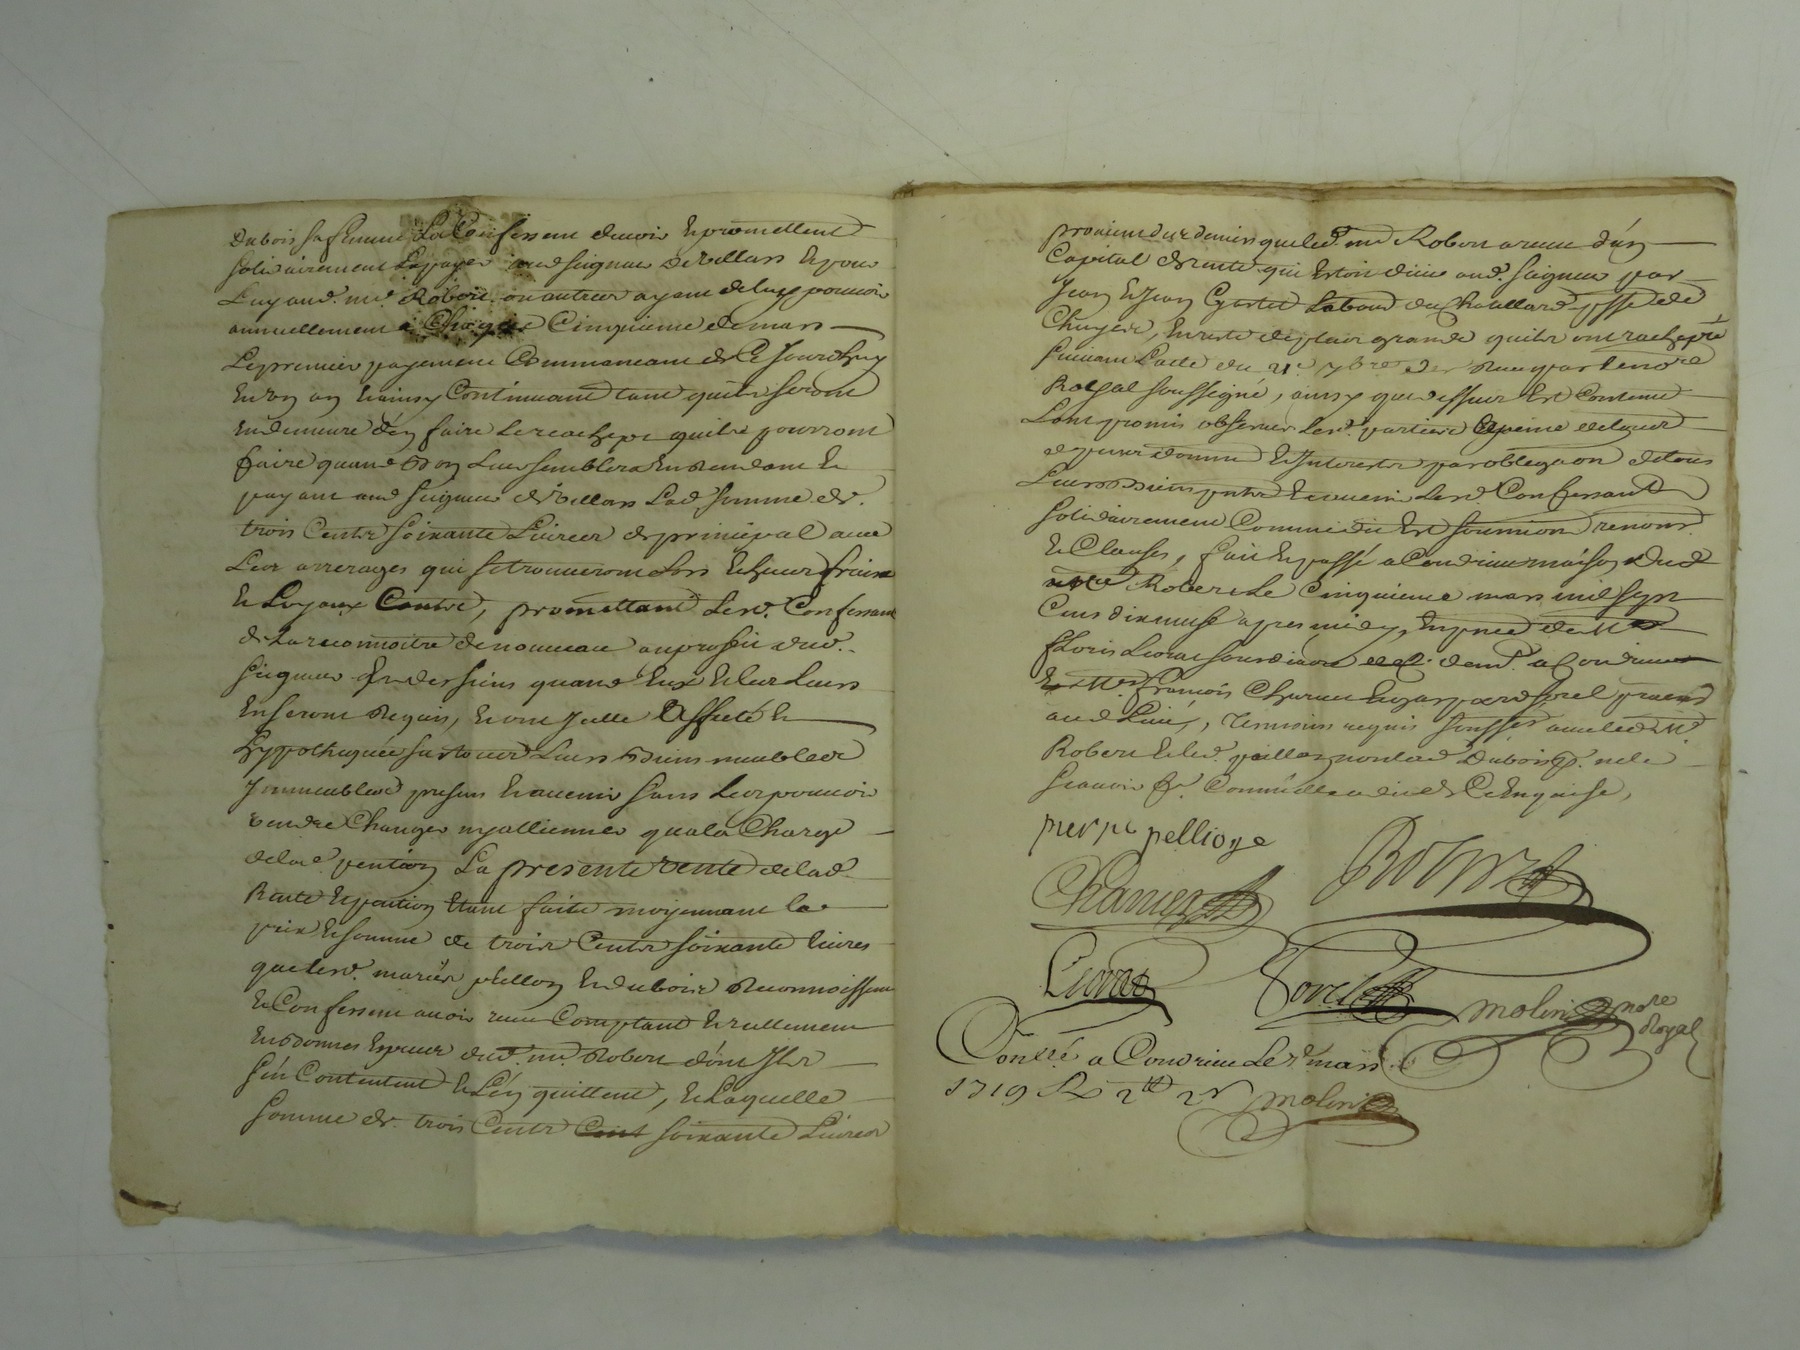 Dubois sa femme La Confessent devoir Et promettent
solidairement Et payer aud seigneur De villars Et pour
Luy aud. mr. Robert ou autres ayant de luy pouvoir
annuellement a Chaque Cinquieme de mars
Le premier payement Commancant de Ce Jourdhuy
En un an Et ainsy Continuant tant quils seront
En demeure d'en faire Le rachept quils pourront
faire quand Bon Leur semblera En Rendant Et
payant aud Seigneur De villars Lad. somme de
trois Cents soixante Livres de principal avec
Les arrerages qui se trouveront Lors Et tous frais
Et Loyaux Couts, promettant Lesd. Confessant
de La reconnoitre de nouveau au proffit dud.
seigneur ou des siens quand Eux Et les Leurs
En seront Requis, Et ont Jcelle Affecté Et
hyppothequée sur tous Leurs Biens meubles
Jmmeubles presens Et avenir sans Les pouvoir
vendre Changer ny allienner qua la Charge
de lad. pention La presente vente de lad.
Rente Et pention Etant faite moyennant le
prix Et somme de trois Cents soixante livres
que lesd. mariés pellion Et dubois Reconnoissent
Et Confessent avoir receu Comptant Et reellement
En Bonnes Especes dud. mr. Robert dont Jls
s'en Contentent Et L'en quittent, Et Laquelle
somme de trois Cents Cent soixante Livres
provient des deniers que led. mr Robert a receu d'un
Capital de rente qui Estoit due aud. seigneur par
Jean Et Jean Labour du Chatellard psse de
Chuyer, En rente de plus grande quils ont rachepté
suivant L'acte du 21e 7bre der Receu par Le nore
Royal soussigné, ainsy que dessus Est Contenu
L'ont promis observer Lesd. parties A peine de tous
depens domm Et Jnterests par obligaon de tous
Leurs Biens pnts Et avenir Lesd Confessant
solidairement Comme dit Est soumion renons
Et Clauses, fait Et passé a Condrieu maison dud
mre Robert Le Cinquieme mars mil sept
Cens dix neuf apres midy, En pnce de Mre
Loras sousdiacre demt. a Condrieu
Et Mre francois Et gaspard
aud Lieu, temoins requis soussés avec led Mr
Robert Et led. pellion non lad Dubois pr. ne le
scavoir fe. Comme Elle a dit de Ce Enquise,
pierre pellion
Robert
Chanier
Molin nore
Royal
Conllé a Condrieu Le 7e mars
1719 Rs 2tt 2s Molin